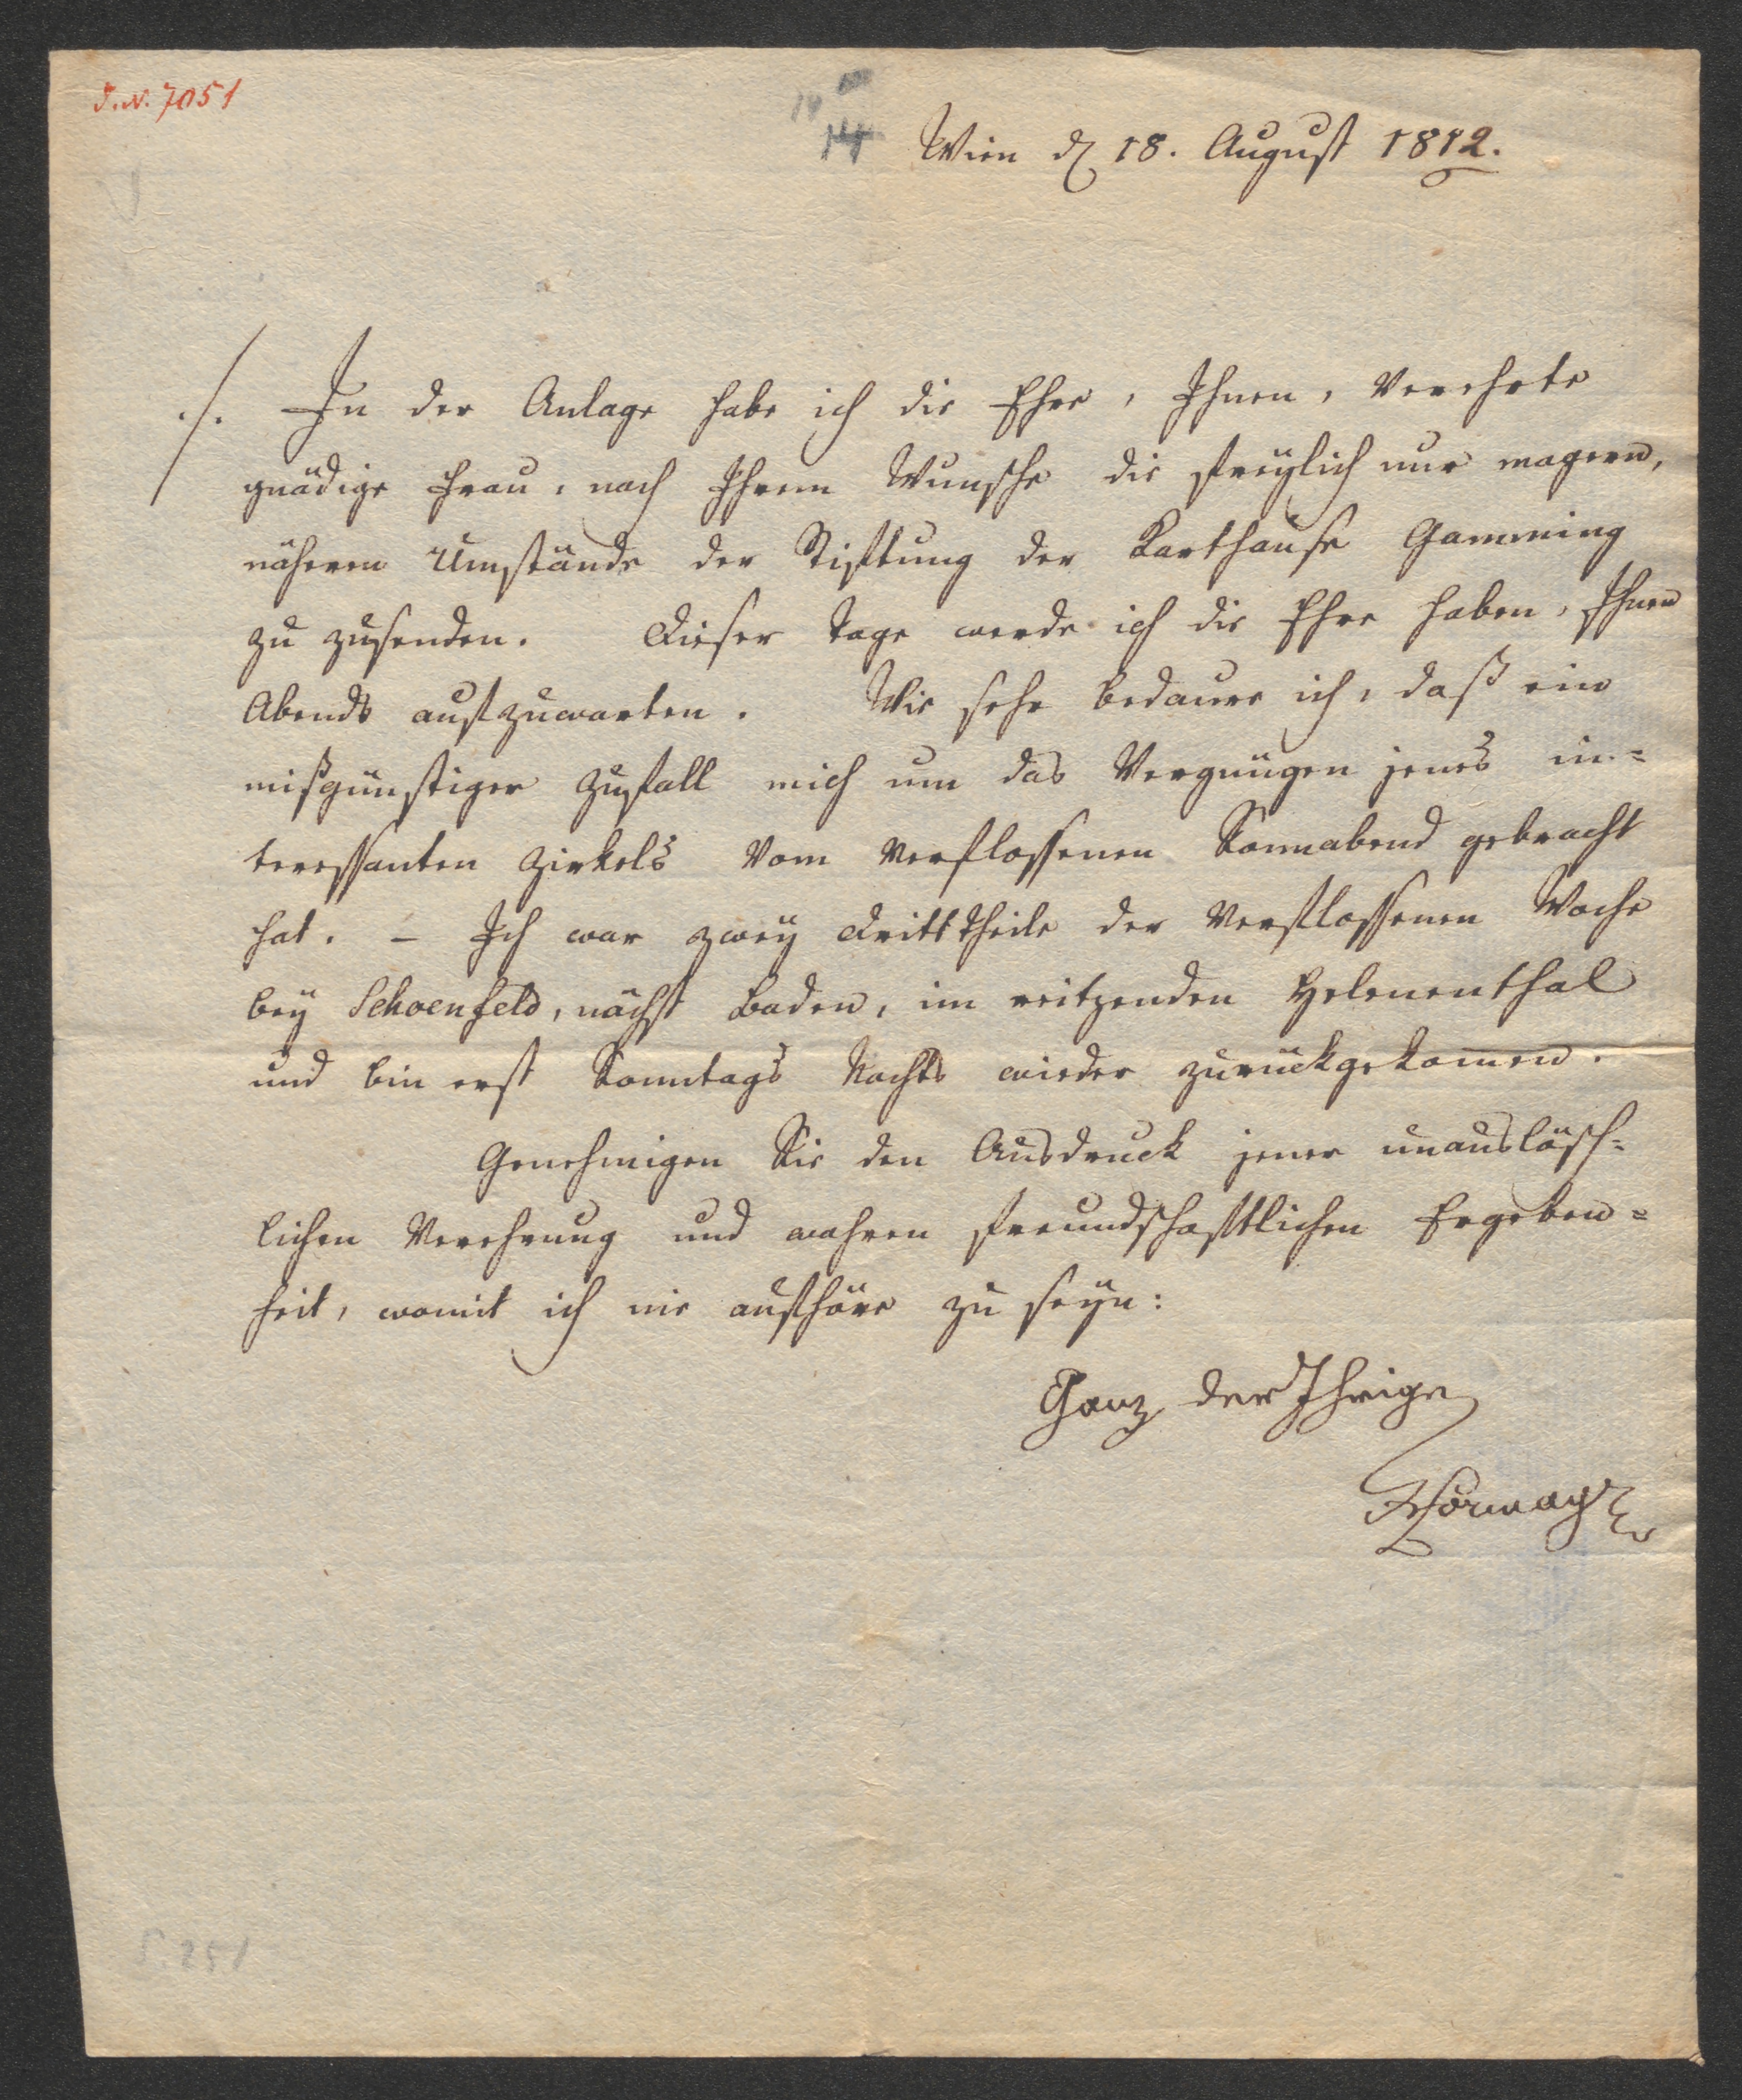 J.N. 7051
14
14
Wien d 18. August 1812.
./. In der Anlage habe ich die Ehre, Ihnen, Verehrte
gnädige Frau, nach Ihrem Wunsche die freylich nur magern,
näheren Umstände der Stiftung der Karthause Gamming
zu zusenden. Dieser Tage werde ich die Ehre haben, Ihnen
Abends aufzuwarten. Wie sehr bedaure ich, daß ein
mißgünstiger Zufall mich um das Vergnügen jenes in=
teressanten Zirkels vom verflossenen Sonnabend gebracht
hat. – Ich war zwey Dritttheile der verflossenen Woche
bey Schoenfeld, nächst Baden, im reitzenden Helenenthal
und bin erst Sonntags Nachts wieder zurückgekom̄en.
Genehmigen Sie den Ausdruck jener unauslösch=
lichen Verehrung und wahren freundschaftlichen Ergeben=
heit, womit ich nie aufhöre zu seyn:
Ganz der Ihrige
Hormayr
S. 251